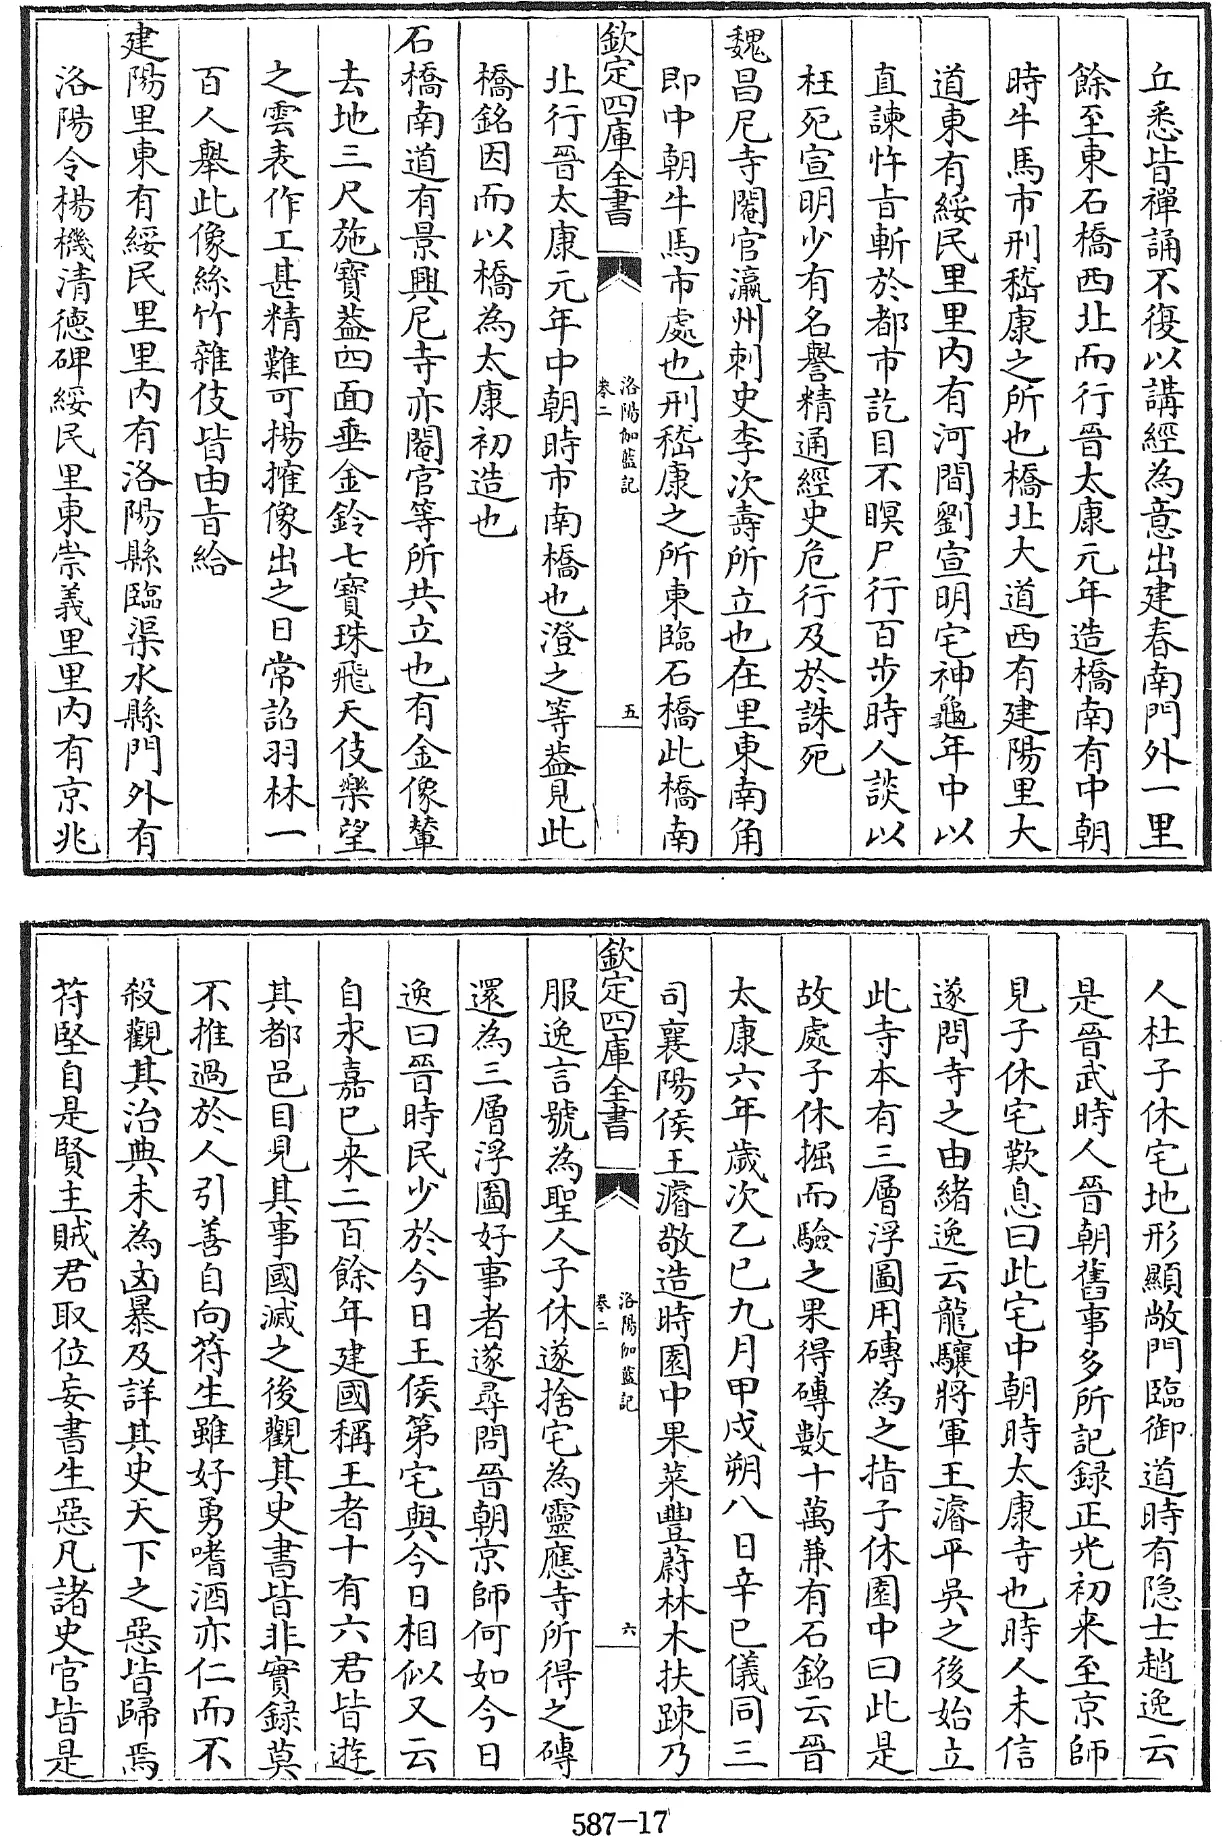 丘悉皆禪誦不復以講經為意出建春南門外一里
餘至東石橋西北而行晉太康元年造橋南有中朝
時牛馬市刑嵇康之所也橋北大道西有建陽里大
道東有綏民里里内有河間劉宣明宅神龜年中以
直諫忤旨斬於都市訖目不瞑尸行百步時人談以
枉死宣明少有名譽精通經史危行及於誅死
魏昌尼寺閹官瀛州刺史李次壽所立也在里東南角
即中朝牛馬市處也刑嵇康之所東臨石橋此橋南
欽定四庫全書
洛陽伽藍記
卷二
五
北行晉太康元年中朝時市南橋也澄之等葢見此
橋銘因而以橋為太康初造也
石橋南道有景興尼寺亦閹官等所共立也有金像輦
去地三尺施寶葢四面垂金鈴七寶珠飛天伎樂望
之雲表作工甚精難可揚搉像出之日常詔羽林一
百人舉此像絲竹雜伎皆由旨給
建陽里東有綏民里里内有洛陽縣臨渠水縣門外有
洛陽令楊機清德碑綏民里東崇義里里内有京兆
人杜子休宅地形顯敞門臨御道時有隐士趙逸云
是晉武時人晉朝舊事多所記録正光初来至京師
見子休宅歎息曰此宅中朝時太康寺也時人未信
遂問寺之由緒逸云龍驤將軍王濬平吳之後始立
此寺本有三層浮圖用磚為之指子休園中曰此是
故處子休掘而驗之果得磚數十萬兼有石銘云晉
太康六年歲次乙巳九月甲戌朔八日辛巳儀同三
司襄陽侯王濬敬造時園中果菜豐蔚林木扶踈乃
欽定四庫全書
洛陽伽藍記
卷二
六
服逸言號為聖人子休遂捨宅為靈應寺所得之磚
還為三層浮圖好事者遂尋問晉朝京師何如今日
逸曰晉時民少於今日王侯第宅與今日相似又云
自永嘉已来二百餘年建國稱王者十有六君皆遊
其都邑目見其事國滅之後觀其史書皆非實録莫
不推過於人引善自向苻生雖好勇嗜酒亦仁而不
殺觀其治典未為凶暴及詳其史天下之惡皆歸焉
苻堅自是賢主賊君取位妄書生惡凡諸史官皆是
587-17